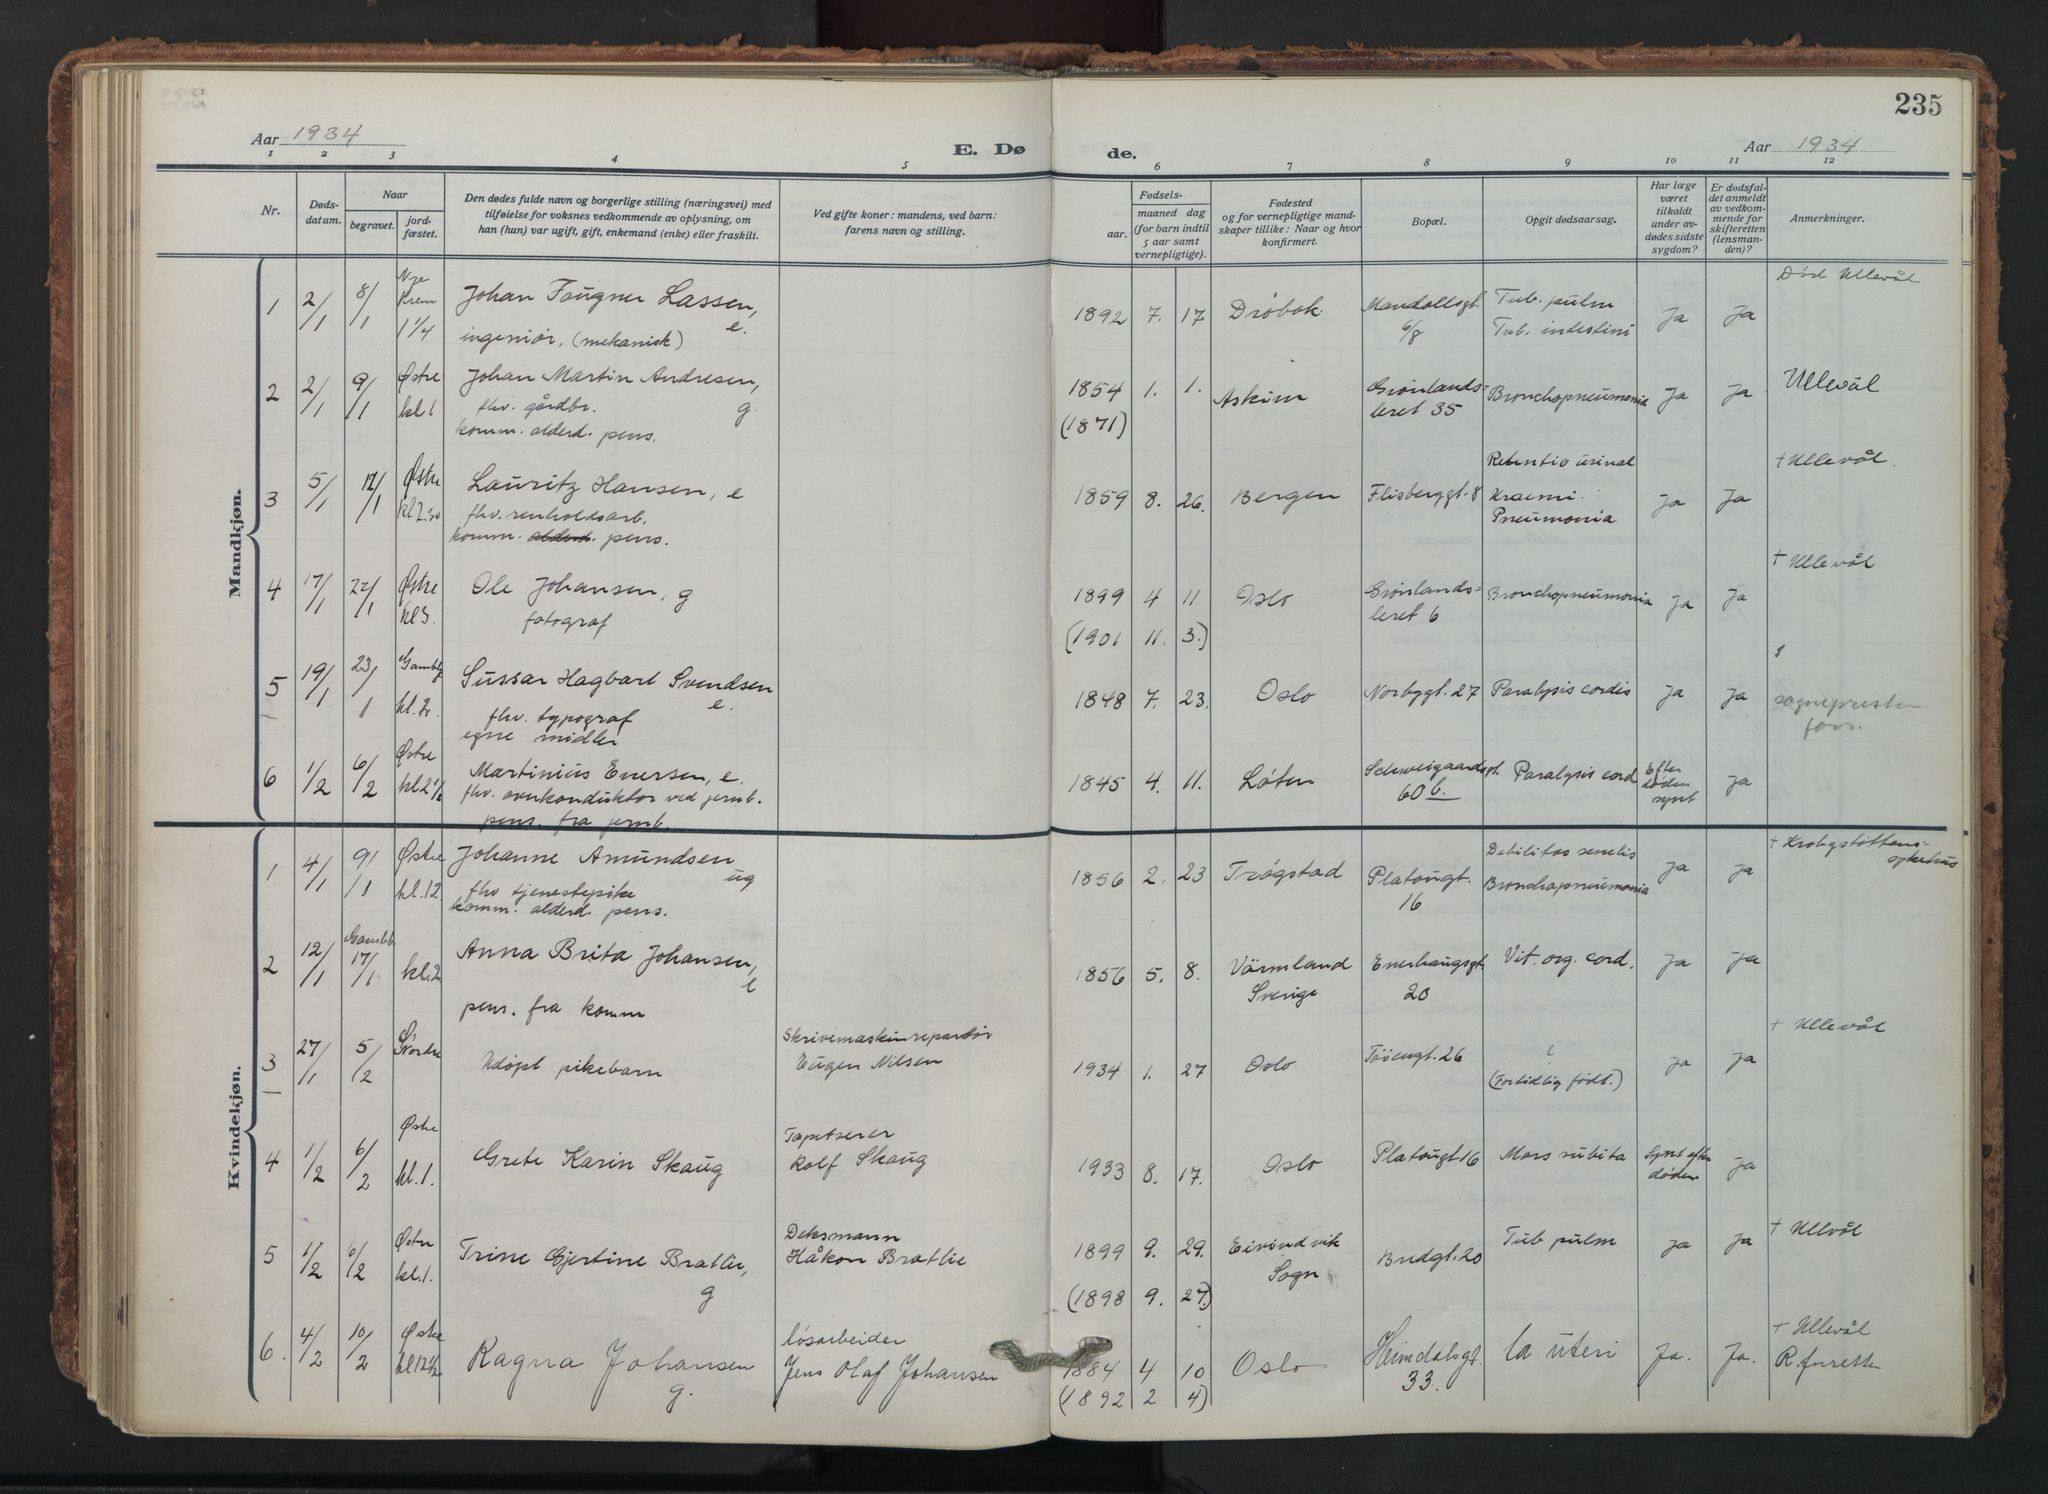 235
Aar 1934
E. Dø
de.
Aar 1934
1 2 3 4 5 6 7 8 9 10 11 12
Nr.
Døds-
datum.
Naar
begravet.
jord-
fæstet.
Den dødes fulde navn og borgerlige stilling (næringsvei) med
tilføielse for voksnes vedkommende av oplysning, om
han (hun) var ugift, gift, enkemand (enke) eller fraskilt.
Ved gifte koner: mandens, ved barn:
farens navn og stilling.
Fødsels-
aar.
maaned dag
(for barn indtil
5 aar samt
vernepligtige).
Fødested
og for vernepligtige mand-
skaper tillike: Naar og hvor
konfirmert.
Bopæl.
Opgit dødsaarsag.
Har læge
været
tilkaldt
under av-
dødes sidste
sygdom?
Er dødsfal-
det anmeldt
av vedkom-
mende for
skifteretten
(lensman-
den)?
Anmerkninger.
Mandkjøn.
1 2/1 8/1 Nye Krem 1 1/4
Johan Fougner Lassen, e.
ingeniør. (mekanisk)
1892 7. 17 Drøbak
Mandallsgt. 6/8
Tub. pulm
Tub. intestini
Ja Ja
Død Ullevål
2 2/1 9/1 Østre kl. 1
Johan Martin Andresen, g.
fhv. gårdbr.
komm. alderd. pens.
1854 1. 1. Askim
(1871)
Grønlands-
leret 35
Bronchopneumonia
Ja Ja
Ullevål
3 5/1 12/1 Østre kl 2.30
Lauritz Hansen, e
fhv. renholdsarb.
komm. alderd. pens.
1859 8. 26. Bergen
Flisberggt. 8
Retentio urinal
Uraemi.
Pneumonia
Ja Ja
+ Ullevål.
4 17/1 22/1 Østre kl 3.
Ole Johansen, g
fotograf
1899 4 11 Oslo
(1901 11. 3.)
Grønlands-
leret 6
Bronchopneumonia
Ja Ja
+ Ullevål
5 19/1 23/1 Gamleb. kl. 2.
Sussar Hagbart Svendsen e.
fhv. typograf
egne midler
1848 7. 23. Oslo
Norbygt. 27
Paralysis cordis
Ja Ja
sognepresten
forr.
6 1/2 6/2 Østre kl 2 1/2
Martinius Enersen, e.
fhv. overkonduktør ved jernb.
pens. fra jernb.
1845 4. 11. Løten
Schweigaardsgt.
60 b.
Paralysis cord
Efter
døden
synt
Ja
Kvindekjøn.
1 4/1 9/1 Østre kl. 12
Johanne Amundsen ug
fhv tjenestepike
komm. alderd. pens.
1856 2. 23 Trøgstad
Platougt.
16
Debilitas senelis
Bronchopneumonia
Ja Ja
+ Krohgstøttens-
sykehus
2 12/1 Gamleb. 17/1 kl. 2.
Anna Brita Johansen, e
pens. fra komm
1856 5. 8. Värmland
Sverige
Enerhaugsgt.
20
Vit. org. cord.
Ja Ja
3 27/1 5/2 Nordre
Udøpt pikebarn
Skrivemaskinreparatør
Eugen Nilsen
1934 1. 27 Oslo
Tøiengt. 26
?
(Fortidlig født.)
Ja Ja
+ Ullevål
4 1/2 6/2 Østre kl. 1.
Grete Karin Skaug
Tapetserer
Rolf Skaug
1933 8. 17. Oslo
Platougt 16
Mors subita
Synt efter
døden
Ja
5 1/2 6/2 Østre kl. 1.
Trine Gjertine Bratlie, g
Deksmann
Håkon Bratlie
1899 9. 29. Eivindvik
Sogn
(1898 9. 27.)
Bredgt. 20
Tub pulm
Ja Ja
+ Ullevål
6. 4/2 10/2 Østre kl 12 1/2
Ragna Johansen g.
løsarbeider
Jens Olaf Johansen
1884 4 10 Oslo
(1892 2 4)
Heimdalsgt.
33.
Ca uteri
Ja. Ja.
+ Ullevål